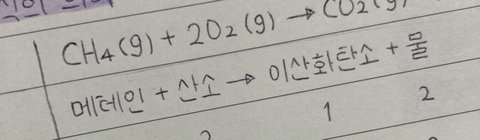 CH₄(g) + 2O₂(g) → CO₂(g)
메테인 + 산소 → 이산화탄소 + 물
1 2